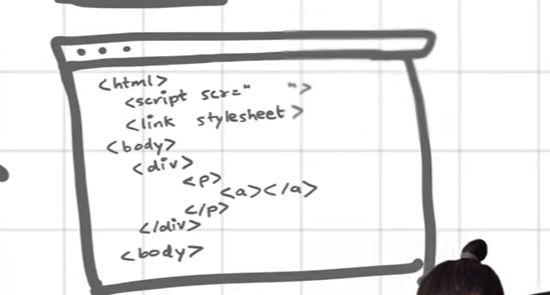 <html>
<script scr=" ">
<link stylesheet>
<body>
<div>
<p>
<a></a>
</p>
</div>
<body>